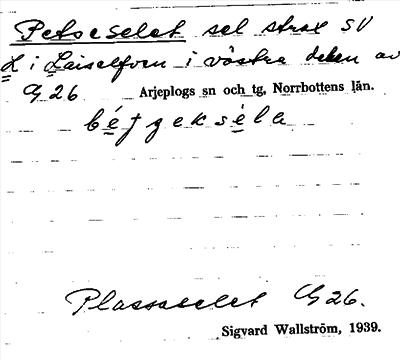 Petseselet sel strax SV
L i Laiselfven i västra delen av
G 26. Arjeplogs sn och tg, Norrbottens län.
Plassaselet G 26.
Sigvard Wallström, 1939.